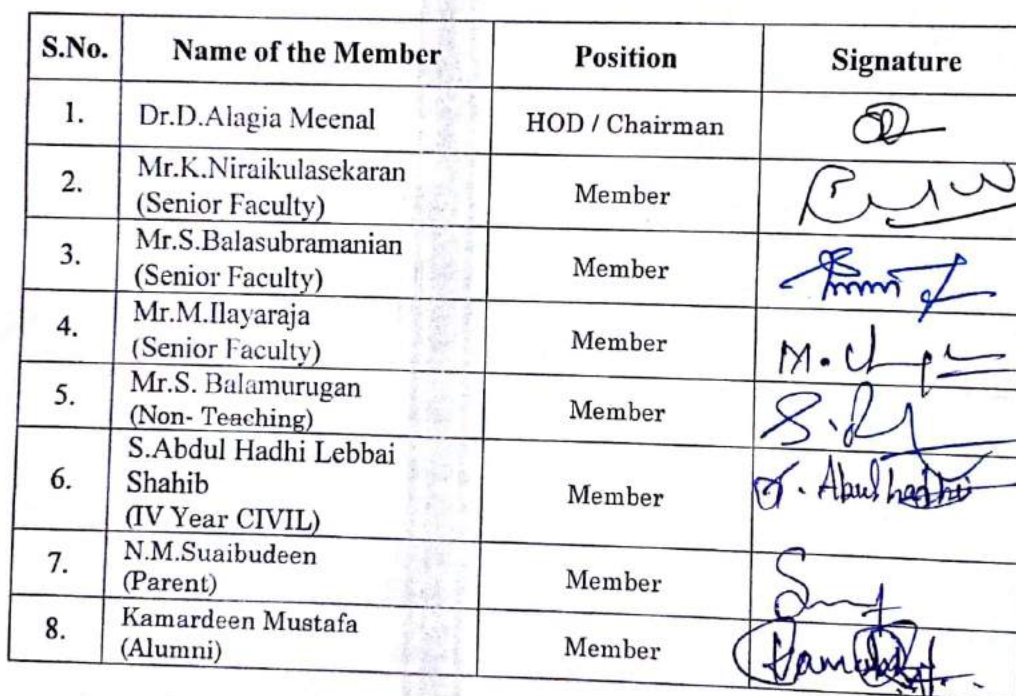 S.No. Name of the Member Position Signature
1. Dr.D.Alagia Meenal HOD / Chairman
2. Mr.K.Niraikulasekaran
(Senior Faculty) Member
3. Mr.S.Balasubramanian
(Senior Faculty) Member
4. Mr.M.Ilayaraja
(Senior Faculty) Member M.
5. Mr.S. Balamurugan
(Non- Teaching) Member S.
6. S.Abdul Hadhi Lebbai
Shahib
(IV Year CIVIL) Member
7. N.M.Suaibudeen
(Parent) Member
8. Kamardeen Mustafa
(Alumni) Member